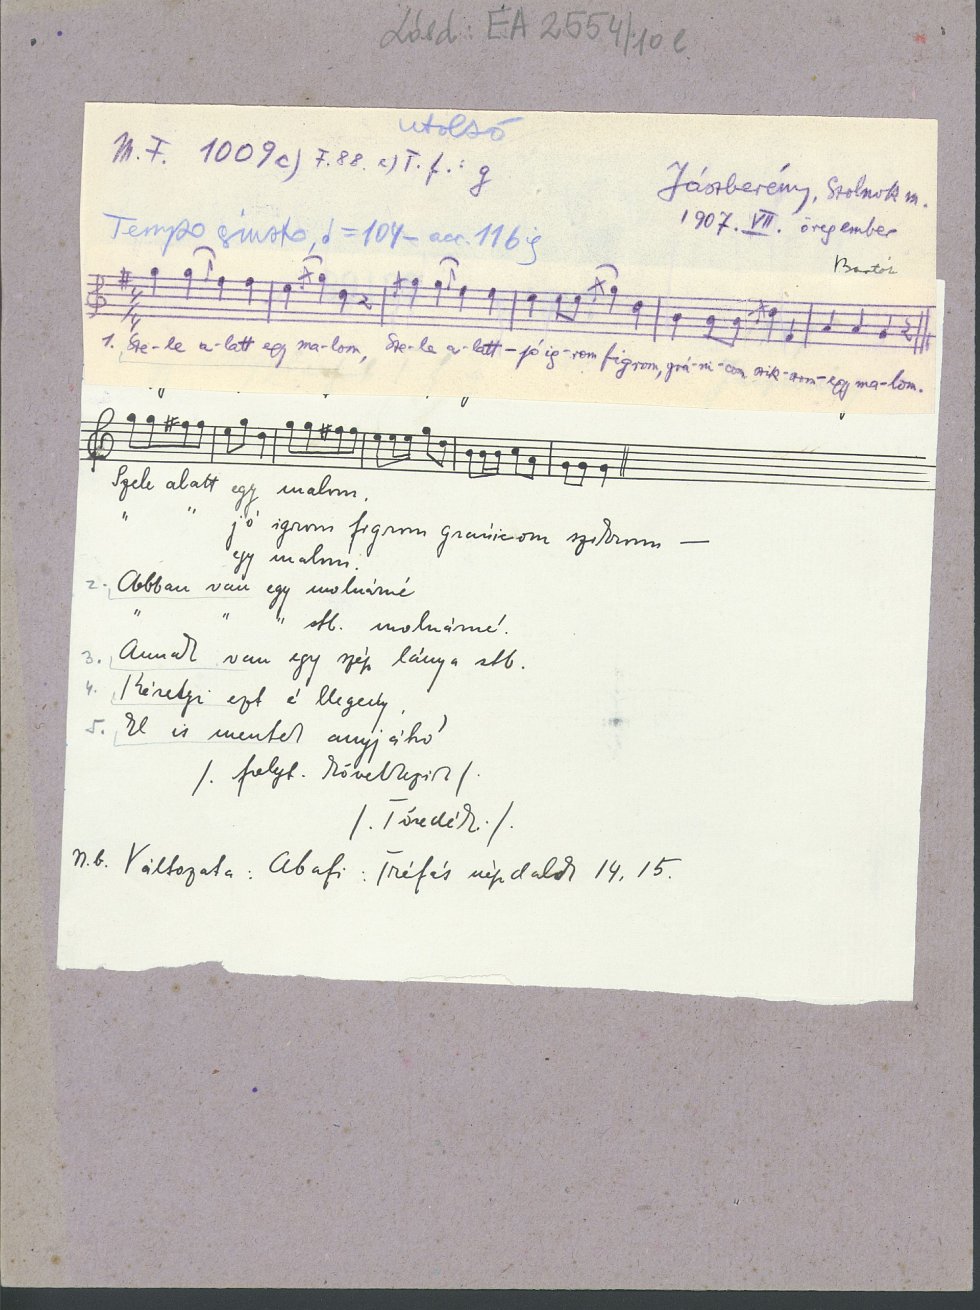 Lásd: ÉA 2554/10 l
utolsó
M.F. 1009c) F.88. c) T.f.: g
Jászberény, Szolnok m.
1907. VII. öregember
Bartók
Tempo giusto, = 104 – acc. 116 ig
1. Sze-le a-latt egy ma-lom, Sze-le a-latt – jó ig-rom figrom, grá-ni-com szik-szom – egy ma-lom.
Szele alatt egy malom,
" " jó igrom figrom gránicom szikszom —
egy malom.
2. Abban van egy molnárné
" " " stb. molnárné.
3. Annak van egy szép lánya stb.
4. Kéretgi ezt é llegény,
5. El is mentek anyjáho'
/. folyt. következik /.
/. Töredék. /.
N.b. Változata: Abafi: Tréfás népdalok 14, 15.